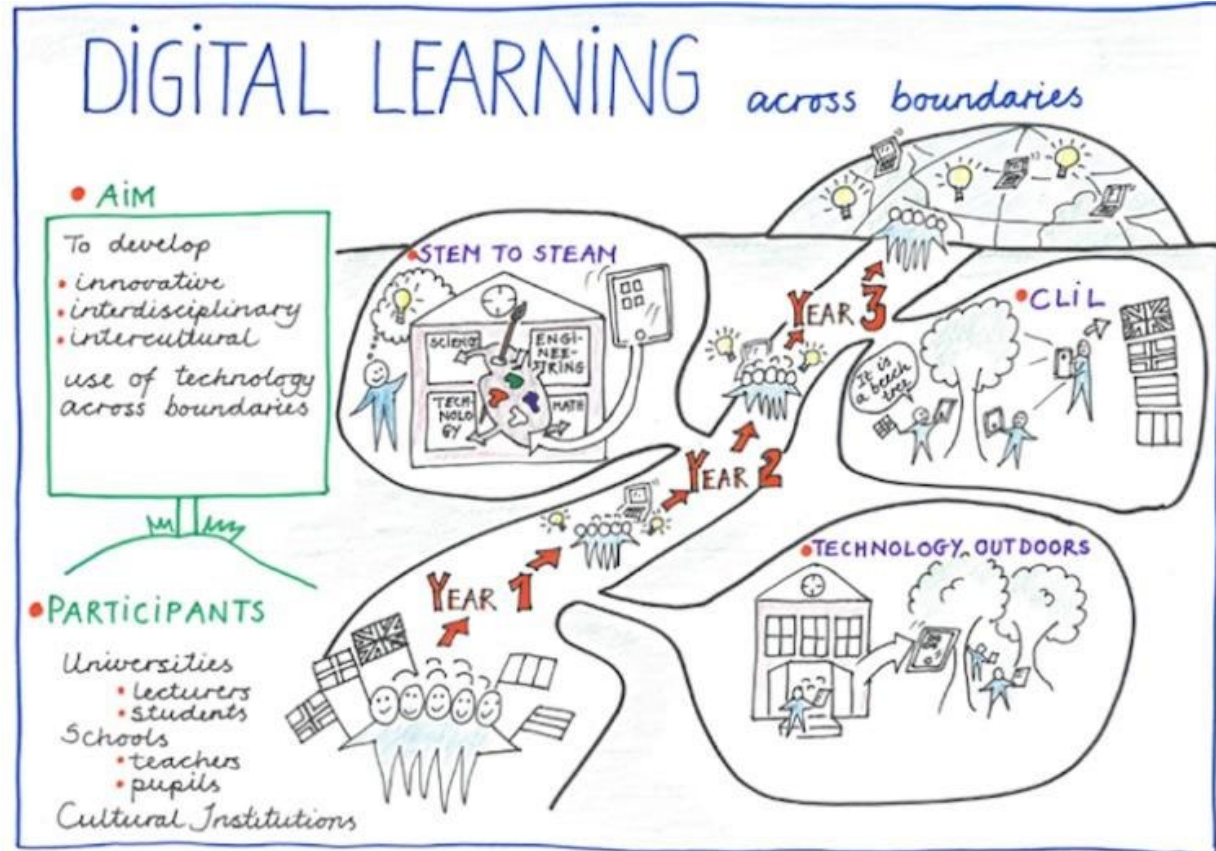 DiGiTAL LEARNiNG across boundaries
• AiM
To develop
• innovative
• interdisciplinary
• intercultural
use of technology
across boundaries
• PARTiCiPANTS
Universities
• lecturers
• students
Schools
• teachers
• pupils
Cultural Institutions
• STEM TO STEAM
SCIENCE
ENGI-
NEE-
RING
TECH-
NOLO
GY
MATH
YEAR 1
YEAR 2
YEAR 3
• CLiL
It is
a beech
tree
• TECHNOLOGY OUTDOORS